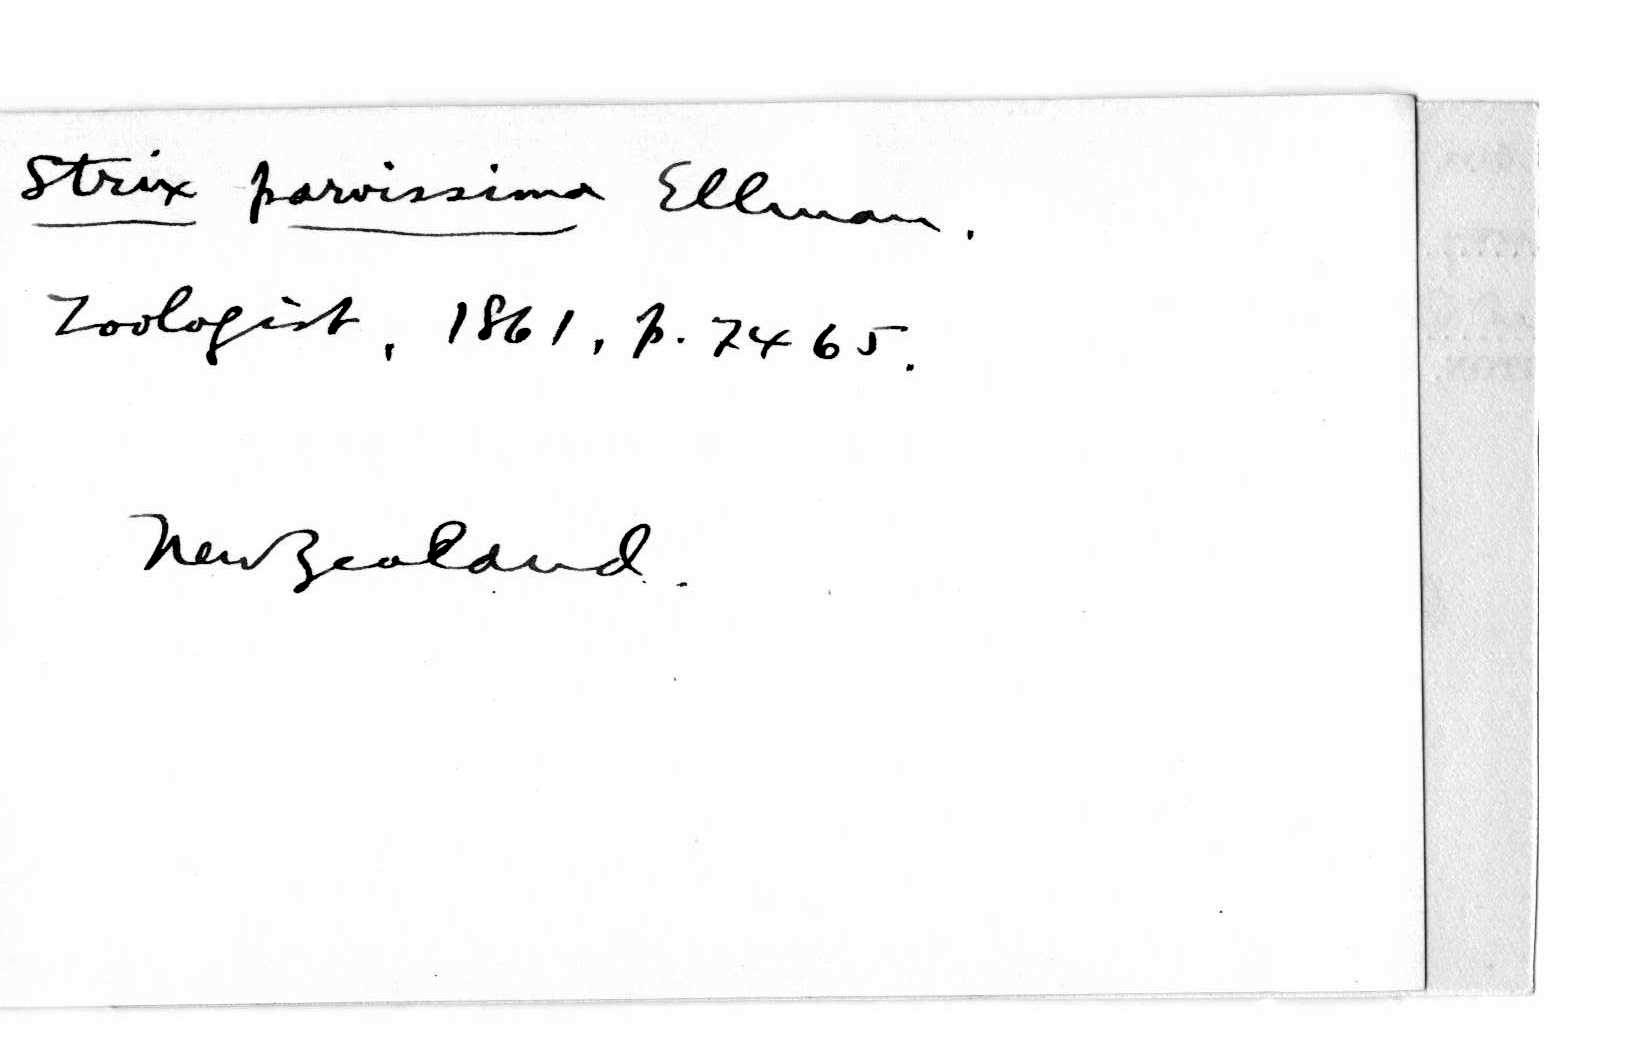 Strix parvissima Ellman.
Zoologist, 1861, p. 7465.
New Zealand.